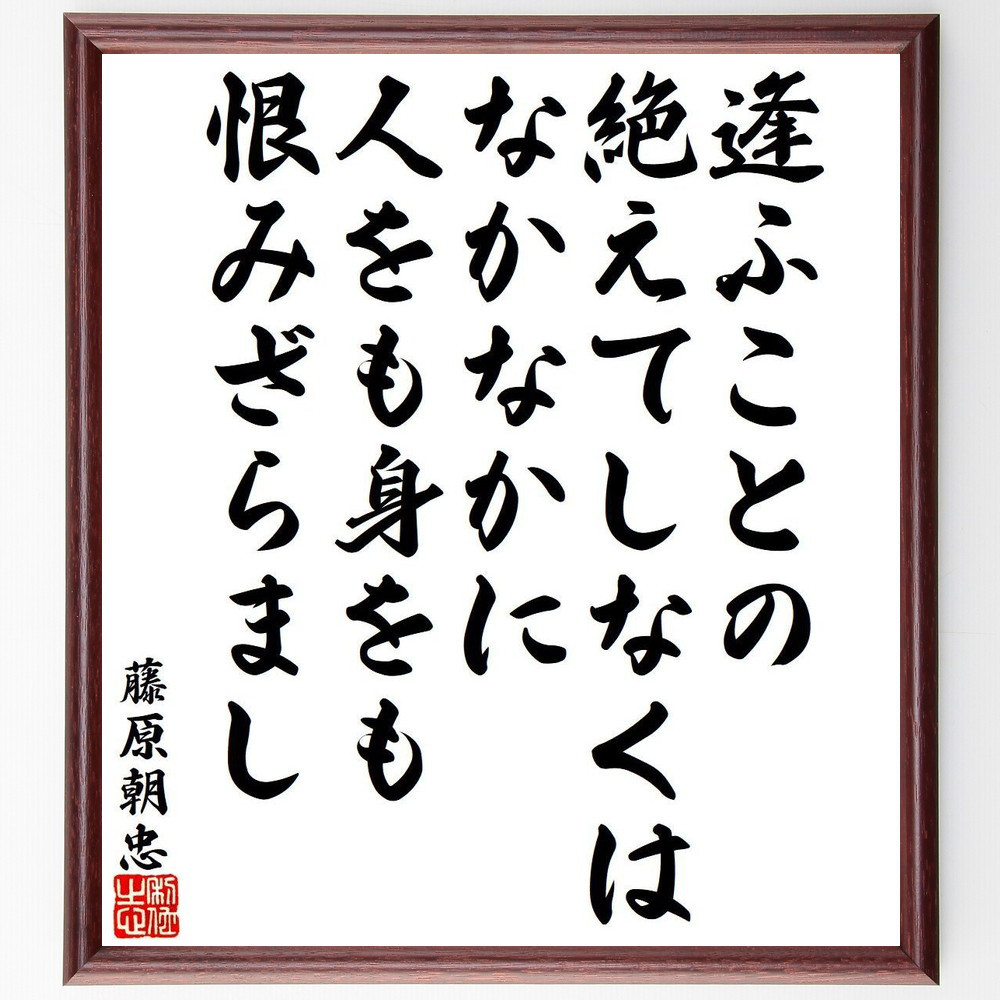 逢ふことの
絶えてしなくは
なかなかに
人をも身をも
恨みざらまし
藤原朝忠